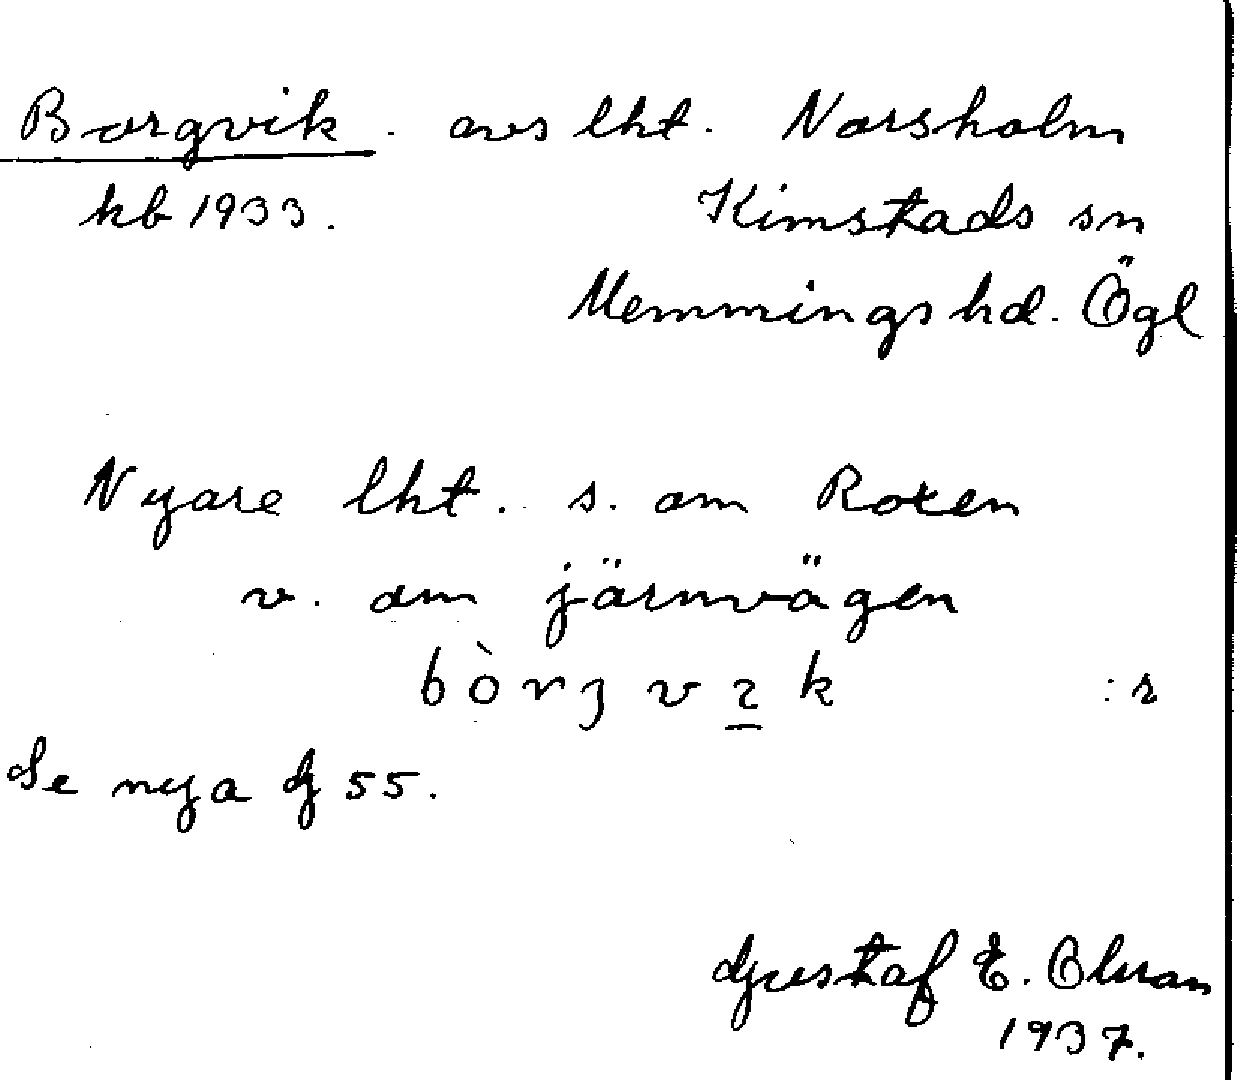 Borgvik. avs lht. Norsholm
kb 1933. Kimstads sn
Memmings hd. Ögl
Nyare lht. s. om Roxen
v. om järnvägen
bòrʒvɩk :r
Se nya G 55.
Gustaf E. Olsson
1937.